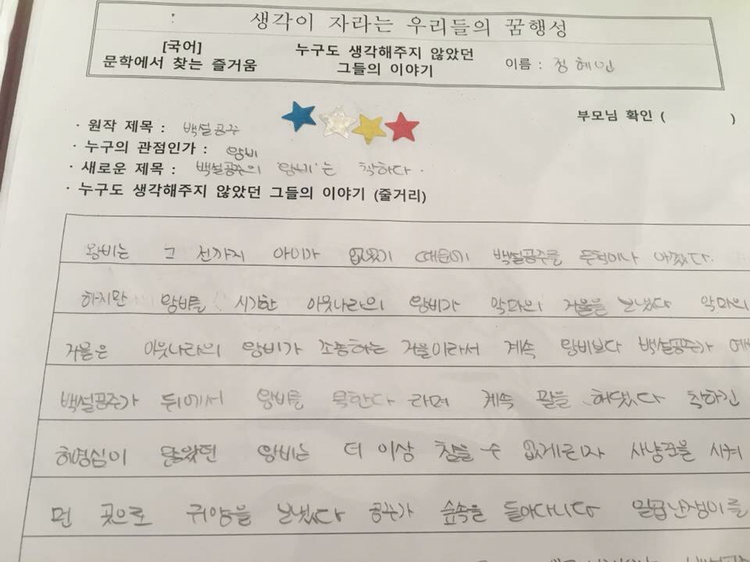 생각이 자라는 우리들의 꿈행성
[국어]
문학에서 찾는 즐거움
누구도 생각해주지 않았던
그들의 이야기
이름 : 정혜민
부모님 확인 ( )
· 원작 제목 : 백설공주
· 누구의 관점인가 : 왕비
· 새로운 제목 : 백설공주의 '왕비'는 착하다.
· 누구도 생각해주지 않았던 그들의 이야기 (줄거리)
왕비는 그 전까지 아이가 없었기 때문에 백설공주를 무척이나 아꼈다.
하지만 왕비를 시기한 이웃나라의 왕비가 악마의 거울을 보냈다 악마의
거울은 이웃나라의 왕비가 조종하는 거울이라서 계속 왕비보다 백설공주가
백설공주가 뒤에서 왕비를 욕한다 라며 계속 말을 해댔다 착하긴
허영심이 많았던 왕비는 더 이상 참을 수 없게되자 사냥꾼을 시켜
먼 곳으로 귀양을 보냈다 공주가 숲속을 돌아다니다 일곱난쟁이를